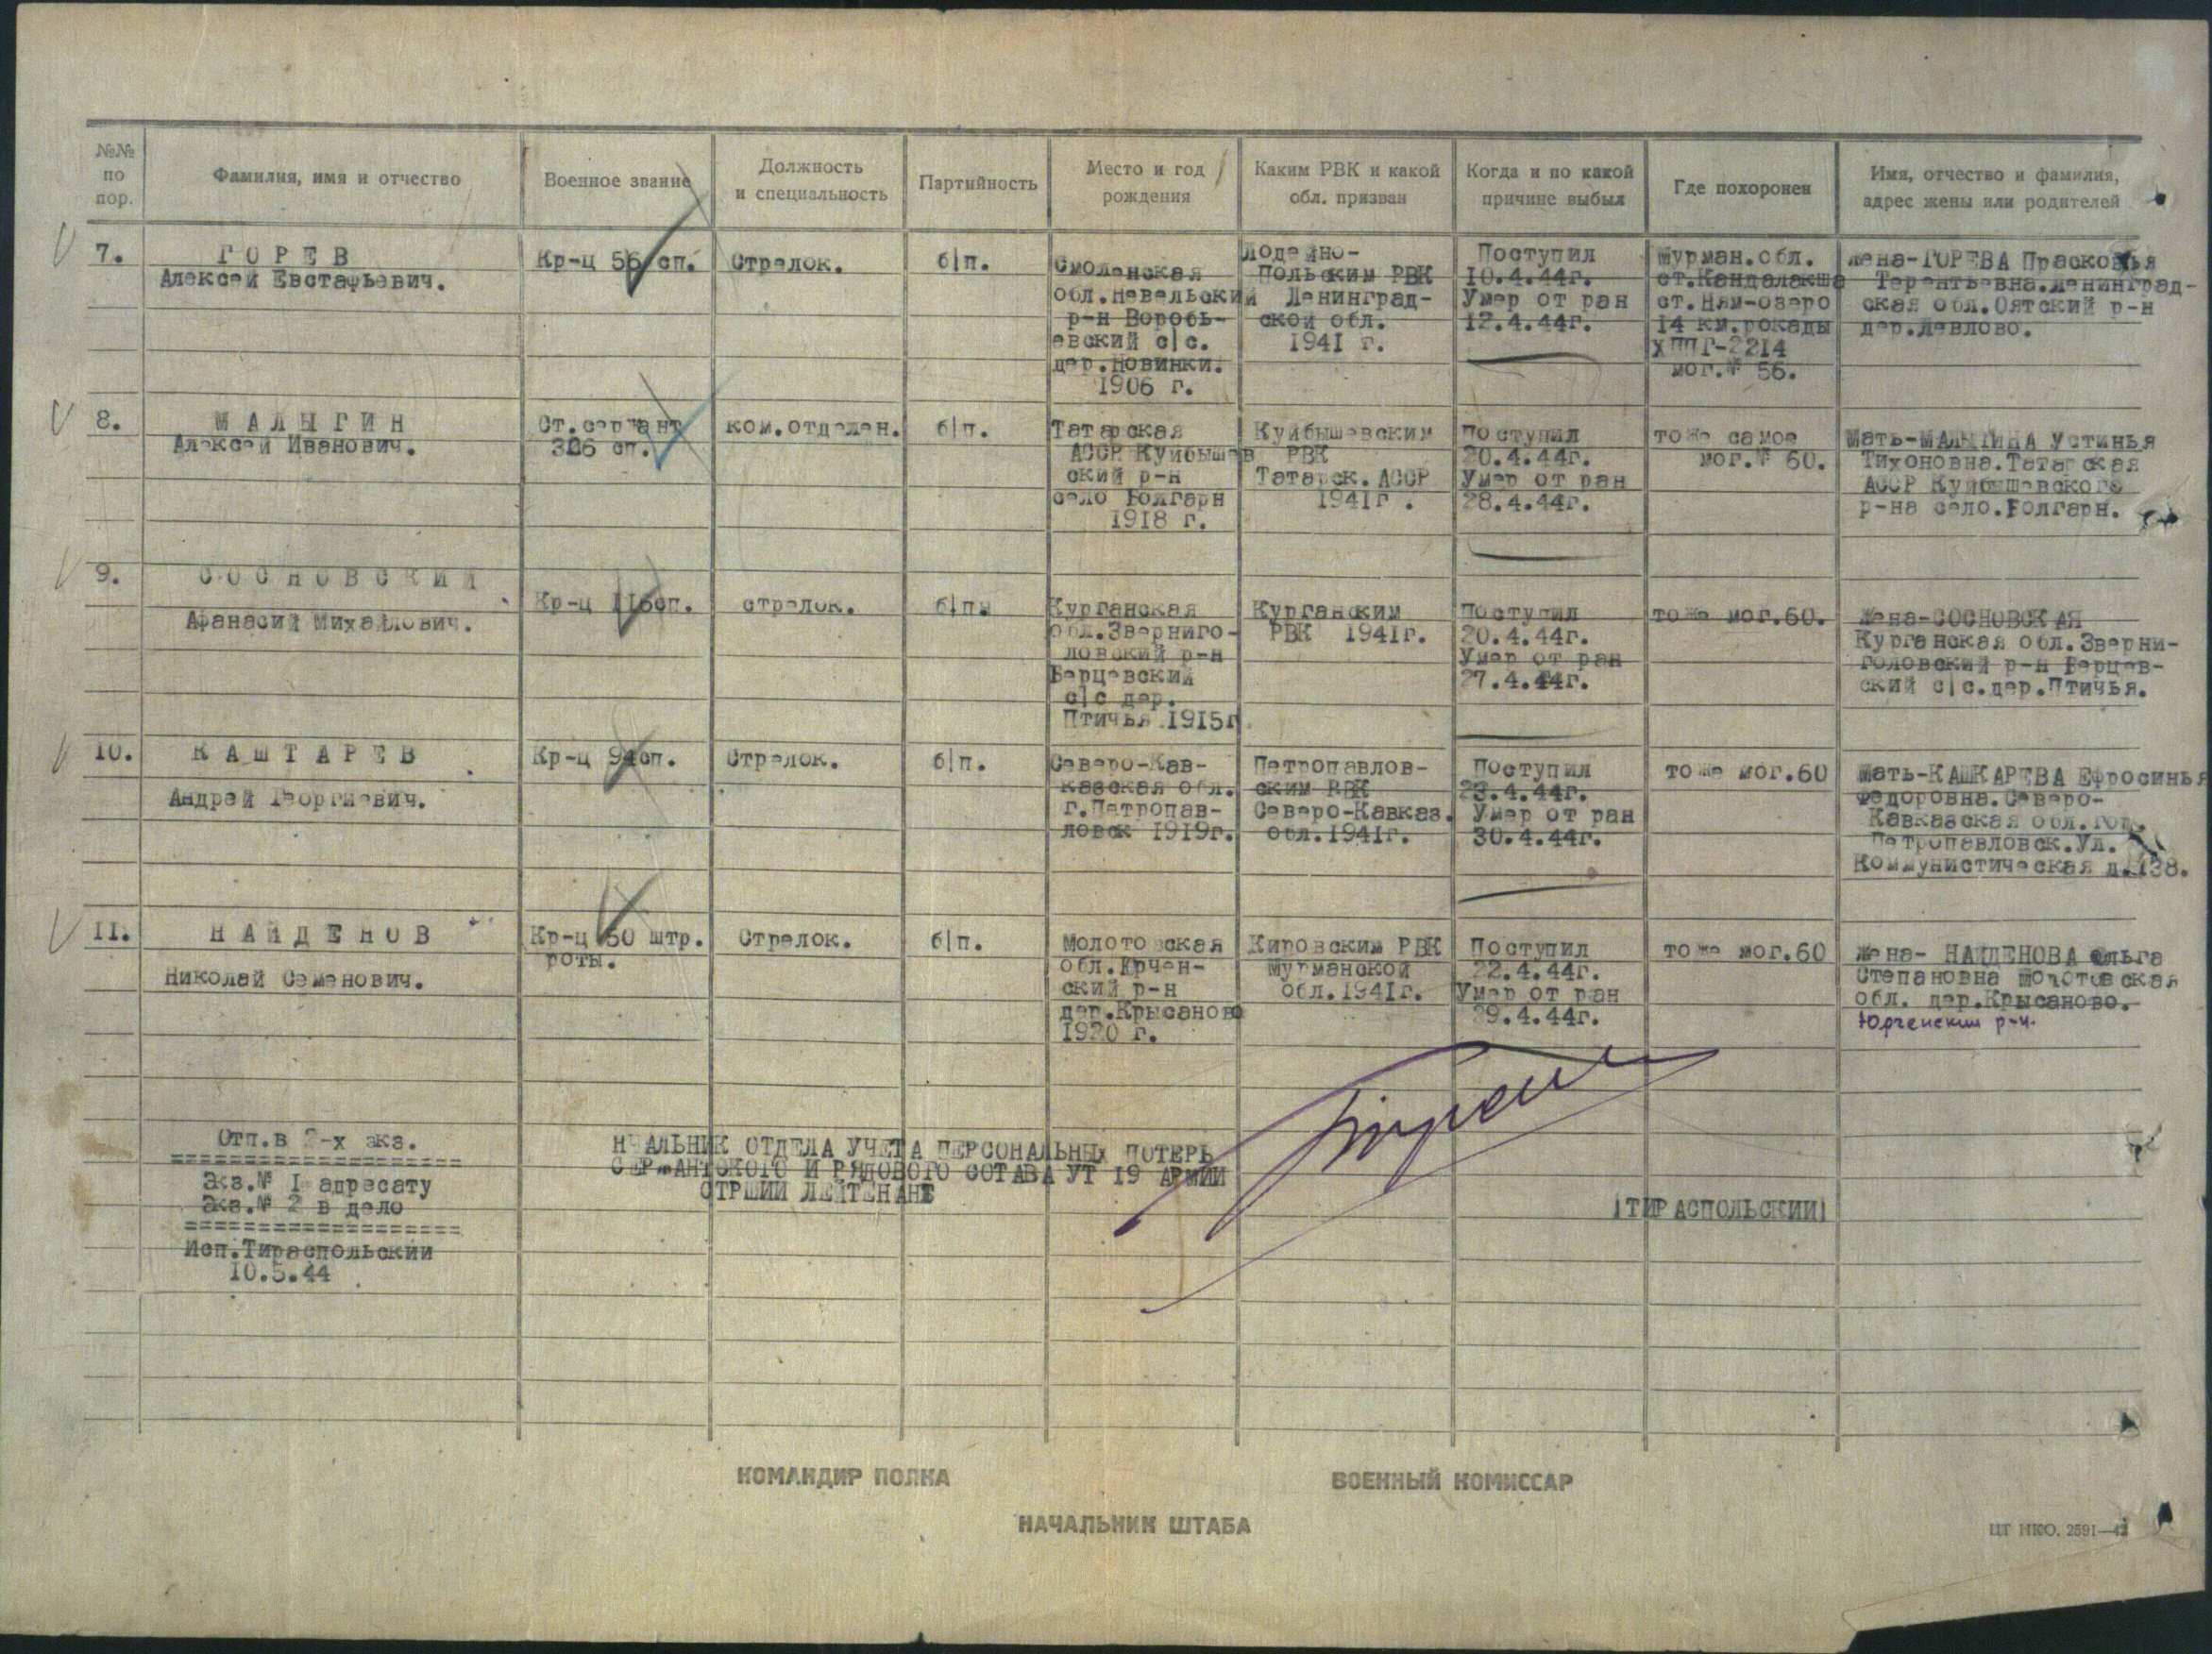 №№ по пор.
Фамилия, имя и отчество
Военное звание
Должность и специальность
Партийность
Место и год рождения
Каким РВК и какой обл. призван
Когда и по какой причине выбыл
Где похоронен
Имя, отчество и фамилия, адрес жены или родителей
7.
ГОРЕВ
Алексей Евстафьевич.
Кр-ц 56 сп.
Стрелок.
б/п.
Смоленская
обл.Невельский
р-н Воробь-
евский с/с.
дер.Новинки.
1906 г.
Лодейно-
польским РВК
Ленинград-
ской обл.
1941 г.
Поступил
10.4.44г.
Умер от ран
12.4.44г.
Мурман.обл.
ст.Кандалакша
ст.Ням-озеро
14 км.рокады
ХППГ-2214
мог.№ 56.
Жена-ГОРЕВА Прасковья
Терентьевна.Ленинград-
ская обл.Оятский р-н
дер.Левлово.
8.
МАЛЫГИН
Алексей Иванович.
Ст.сержант
ком.отделен.
б/п.
Татарская
АССР Куйбышев
ский р-н
село Болгари
1918 г.
Куйбышевским
РВК
Татарск. АССР
1941г.
Поступил
20.4.44г.
Умер от ран
28.4.44г.
тоже самое
мог.№ 60.
Мать-МАЛЫГИНА Устинья
Тихоновна.Татарская
АССР Куйбышевского
р-на село.Болгари.
9.
СОСНОВСКИЙ
Афанасий Михайлович.
Кр-ц 116сп.
стрелок.
б/п.
Курганская
обл.Зверниго-
ловский р-н
Берцевский
с/с дер.
Птичья 1915г
Курганским
РВК 1941г.
Поступил
20.4.44г.
Умер от ран
27.4.44г.
тоже мог.60.
Жена-СОСНОВСКАЯ
Курганская обл.Зверни-
головский р-н Берцев-
ский с/с.дер.Птичья.
10.
КАШТАРЕВ
Андрей Георгиевич.
Кр-ц 94сп.
Стрелок.
б/п.
Северо-Кав-
казская обл.
г.Петропав-
ловск 1919г.
Петропавлов-
ским РВК
Северо-Кавказ.
обл.1941г.
Поступил
23.4.44г.
Умер от ран
30.4.44г.
тоже мог.60
Мать-КАШКАРЕВА Ефросинья
Федоровна.Северо-
Кавказская обл.гор.
Петропавловск.Ул.
Коммунистическая д.138.
11.
НАЙДЕНОВ
Николай Семенович.
Кр-ц 50 штр.
роты.
Стрелок.
б/п.
Молотовская
обл.Юрчен-
ский р-н
дер.Крысаново
1920 г.
Кировским РВК
Мурманской
обл.1941г.
Поступил
22.4.44г.
Умер от ран
29.4.44г.
тоже мог.60
Жена- НАЙДЕНОВА Ольга
Степановна Молотовская
обл. дер.Крысаново.
Юрченский р-н.
Отп.в 2-х экз.
===================
Экз.№ 1 адресату
Экз.№ 2 в дело
===================
Исп.Тираспольский
10.5.44
НЧАЛЬНИК ОТДЕЛА УЧЕТА ПЕРСОНАЛЬНЫХ ПОТЕРЬ
СЕРЖАНТСКОГО И РЯДОВОГО СОТАВА УТ 19 АРМИИ
СТРШИЙ ЛЕЙТЕНАНТ
/ТИРАСПОЛЬСКИЙ/
КОМАНДИР ПОЛКА
ВОЕННЫЙ КОМИССАР
НАЧАЛЬНИК ШТАБА
ЦТ НКО. 2591—42